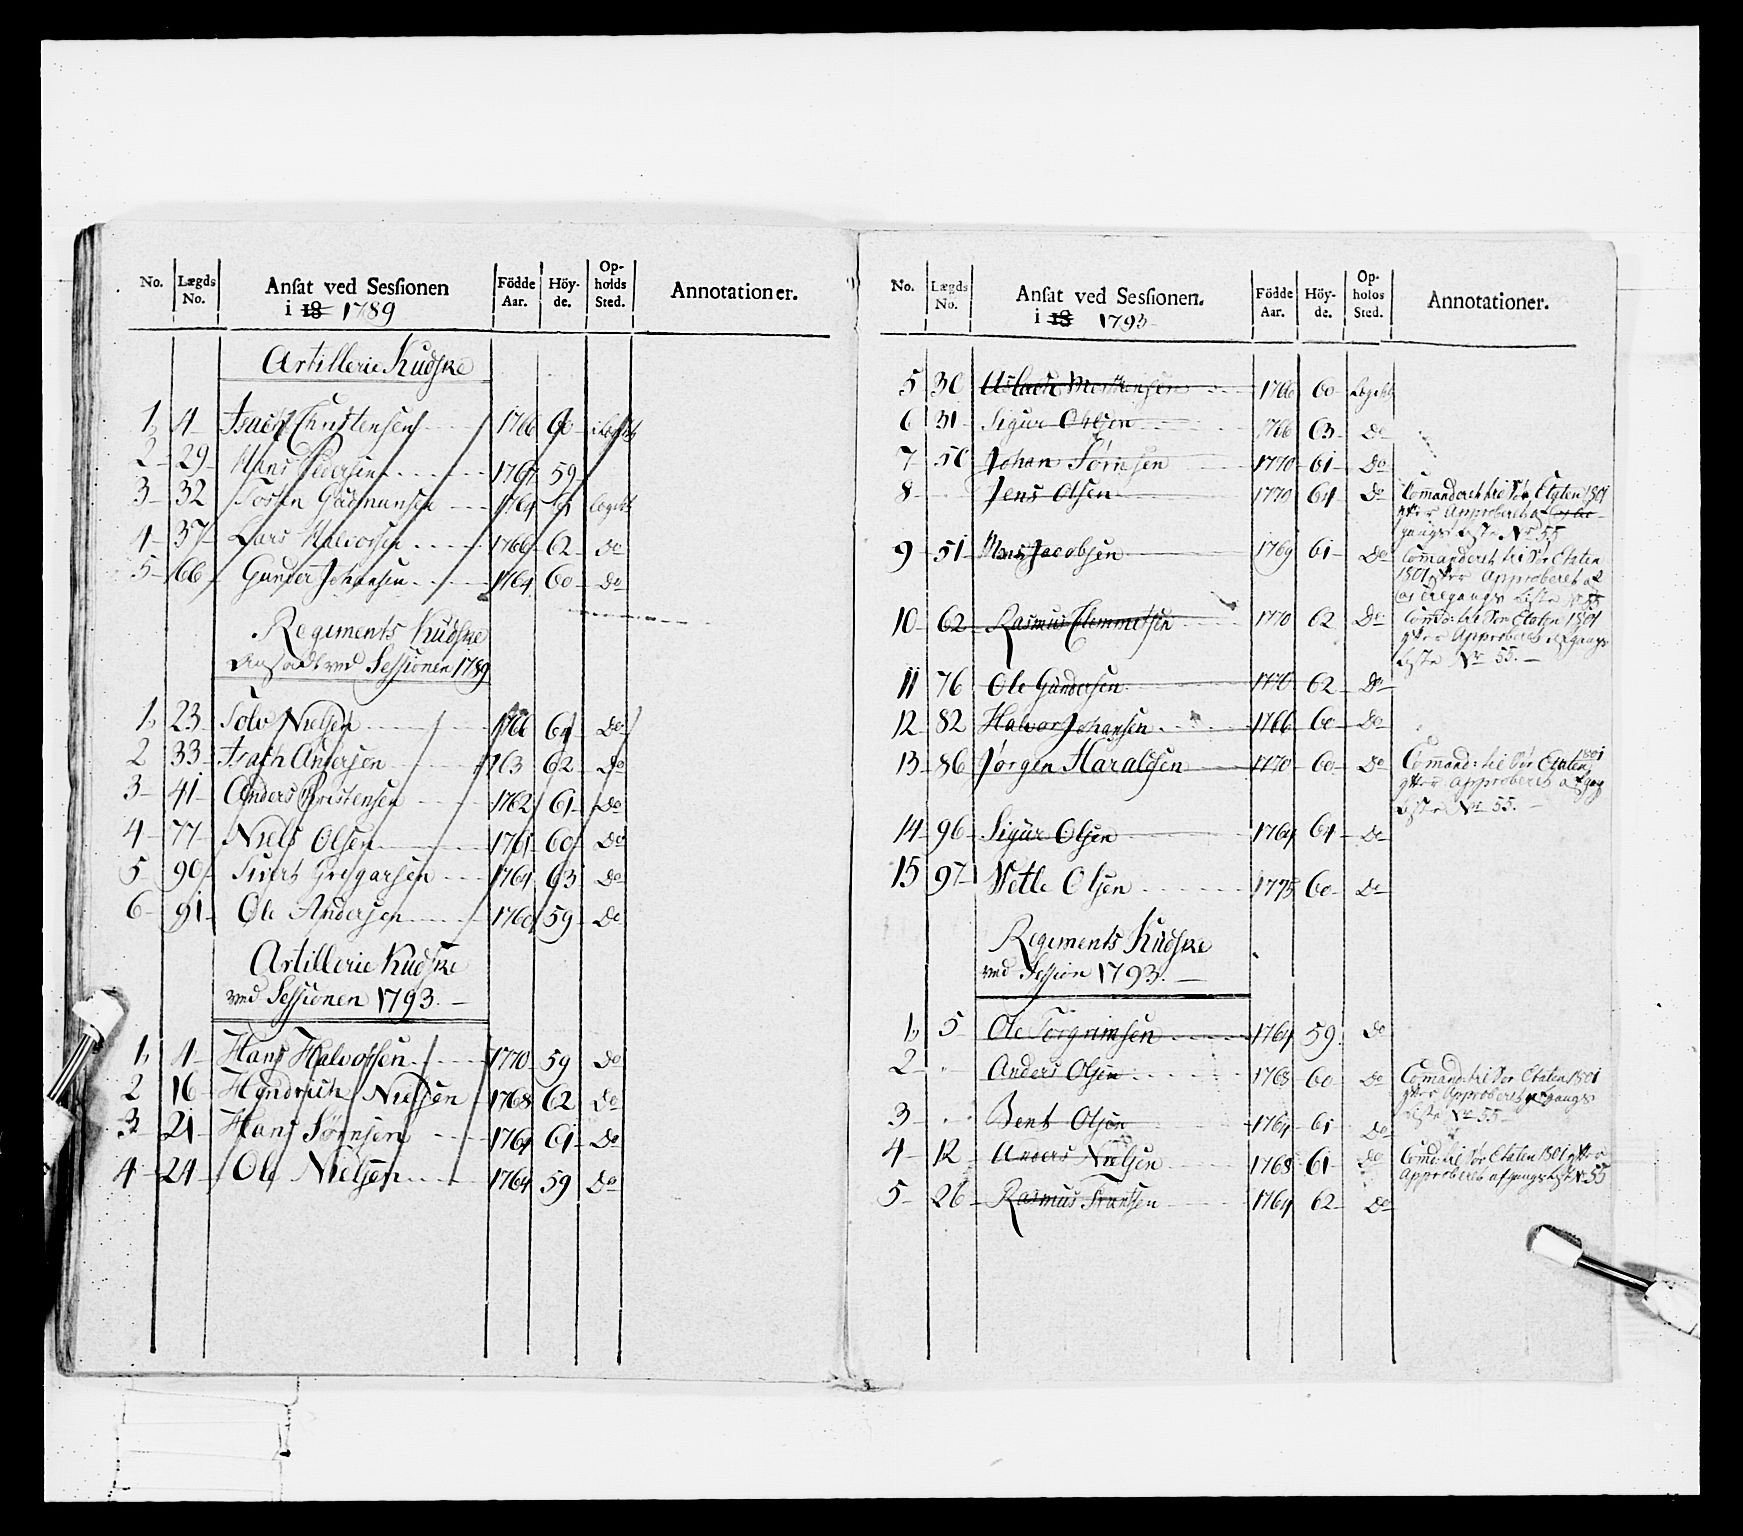 No. Lægds No. Ansat ved Sessionen i 18 1789 Födde Aar. Höyde. Opholds Sted. Annotationer.
Artillerie Kudske
1, 4 Isach Christensen 1766 60 Legdet
2 29 Hans Pedersen 1767 59
3 32 Tosten Gudmunsen 1764 Legdet
4 37 Lars Halvorsen 1766 62 Do
5 66 Gunder Johansen 1764 60 Do
Regiments Kudske
Ansadt ved Sessionen 1789
1, 23 Solv Nielsen 1766 64 Do
2 33 Isach Andersen 1763 62 Do
3 41 Anders Christensen 1762 61 Do
4 77 Niels Olsen 1761 60 Do
5 90 Sivert Gregarsen 1764 63 Do
6 91 Ole Andersen 1760 59 Do
Artillerie Kudske
ved Sessionen 1793.
1, 4 Hans Halvorsen 1770 59 Do
2 16 Hendrich Nielsen 1768 62 Do
3 21 Hans Sörnsen 1764 61 Do
4 24 Ole Nielsen 1764 59 Do
No. Lægds No. Ansat ved Sessionen. i 18 1793 Födde Aar. Höyde. Opholds Sted. Annotationer.
5 30 Aslach Mortensen 1766 60 Legdet
6 31 Sigur Olsen 1766 63 Do
7 50 Johan Sörnsen 1770 61 Do
8 Jens Olsen 1770 64 Do Commanderet til Sör Etaten 1801
efter Approberet af
gangs Liste No 55
9 51 Hans Jacobsen 1769 61 Do Commanderet til Sör Etaten
1801 efter Approberet af
gangs Liste No 55
10 62 Rasmus Clemmetsen 1770 62 Do Comd: til Sör Etaten 1801
efter Approberet afgangs
Liste No 55.
11 76 Ole Gundersen 1770 62 Do
12 82 Halvor Johansen 1766 60 Do
13 86 Jörgen Haraldsen 1770 60 Do Command: til Sör Etaten 1801
efter approberet afgang
Liste No 55.
14 96 Sigur Olsen 1764 64 Do
15 97 Vetle Olsen 1775 60 Do
Regiments Kudske
ved Session 1793.
1, 5 Ole Torgrimsen 1764 59 Do
2 Anders Olsen 1768 60 Do Comand: til Sör Etaten 1801
efter Approberet afgangs
Liste No 55
3 Bent Olsen 1764 61 Do
4 12 Anders Nielsen 1768 61 Do Comd: til Sör Etaten 1801 efter
Approberet afgangs Liste No 55
5 26 Rasmus Frantsen 1764 62 Do